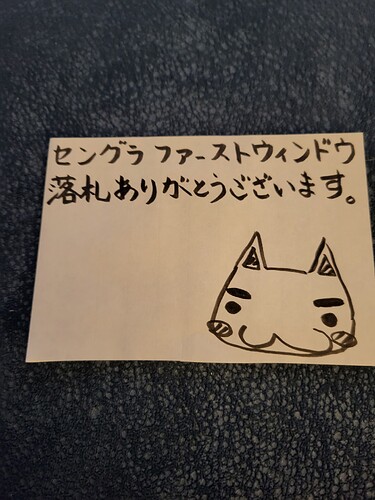 セングラ ファーストウィンドウ
落札ありがとうございます。